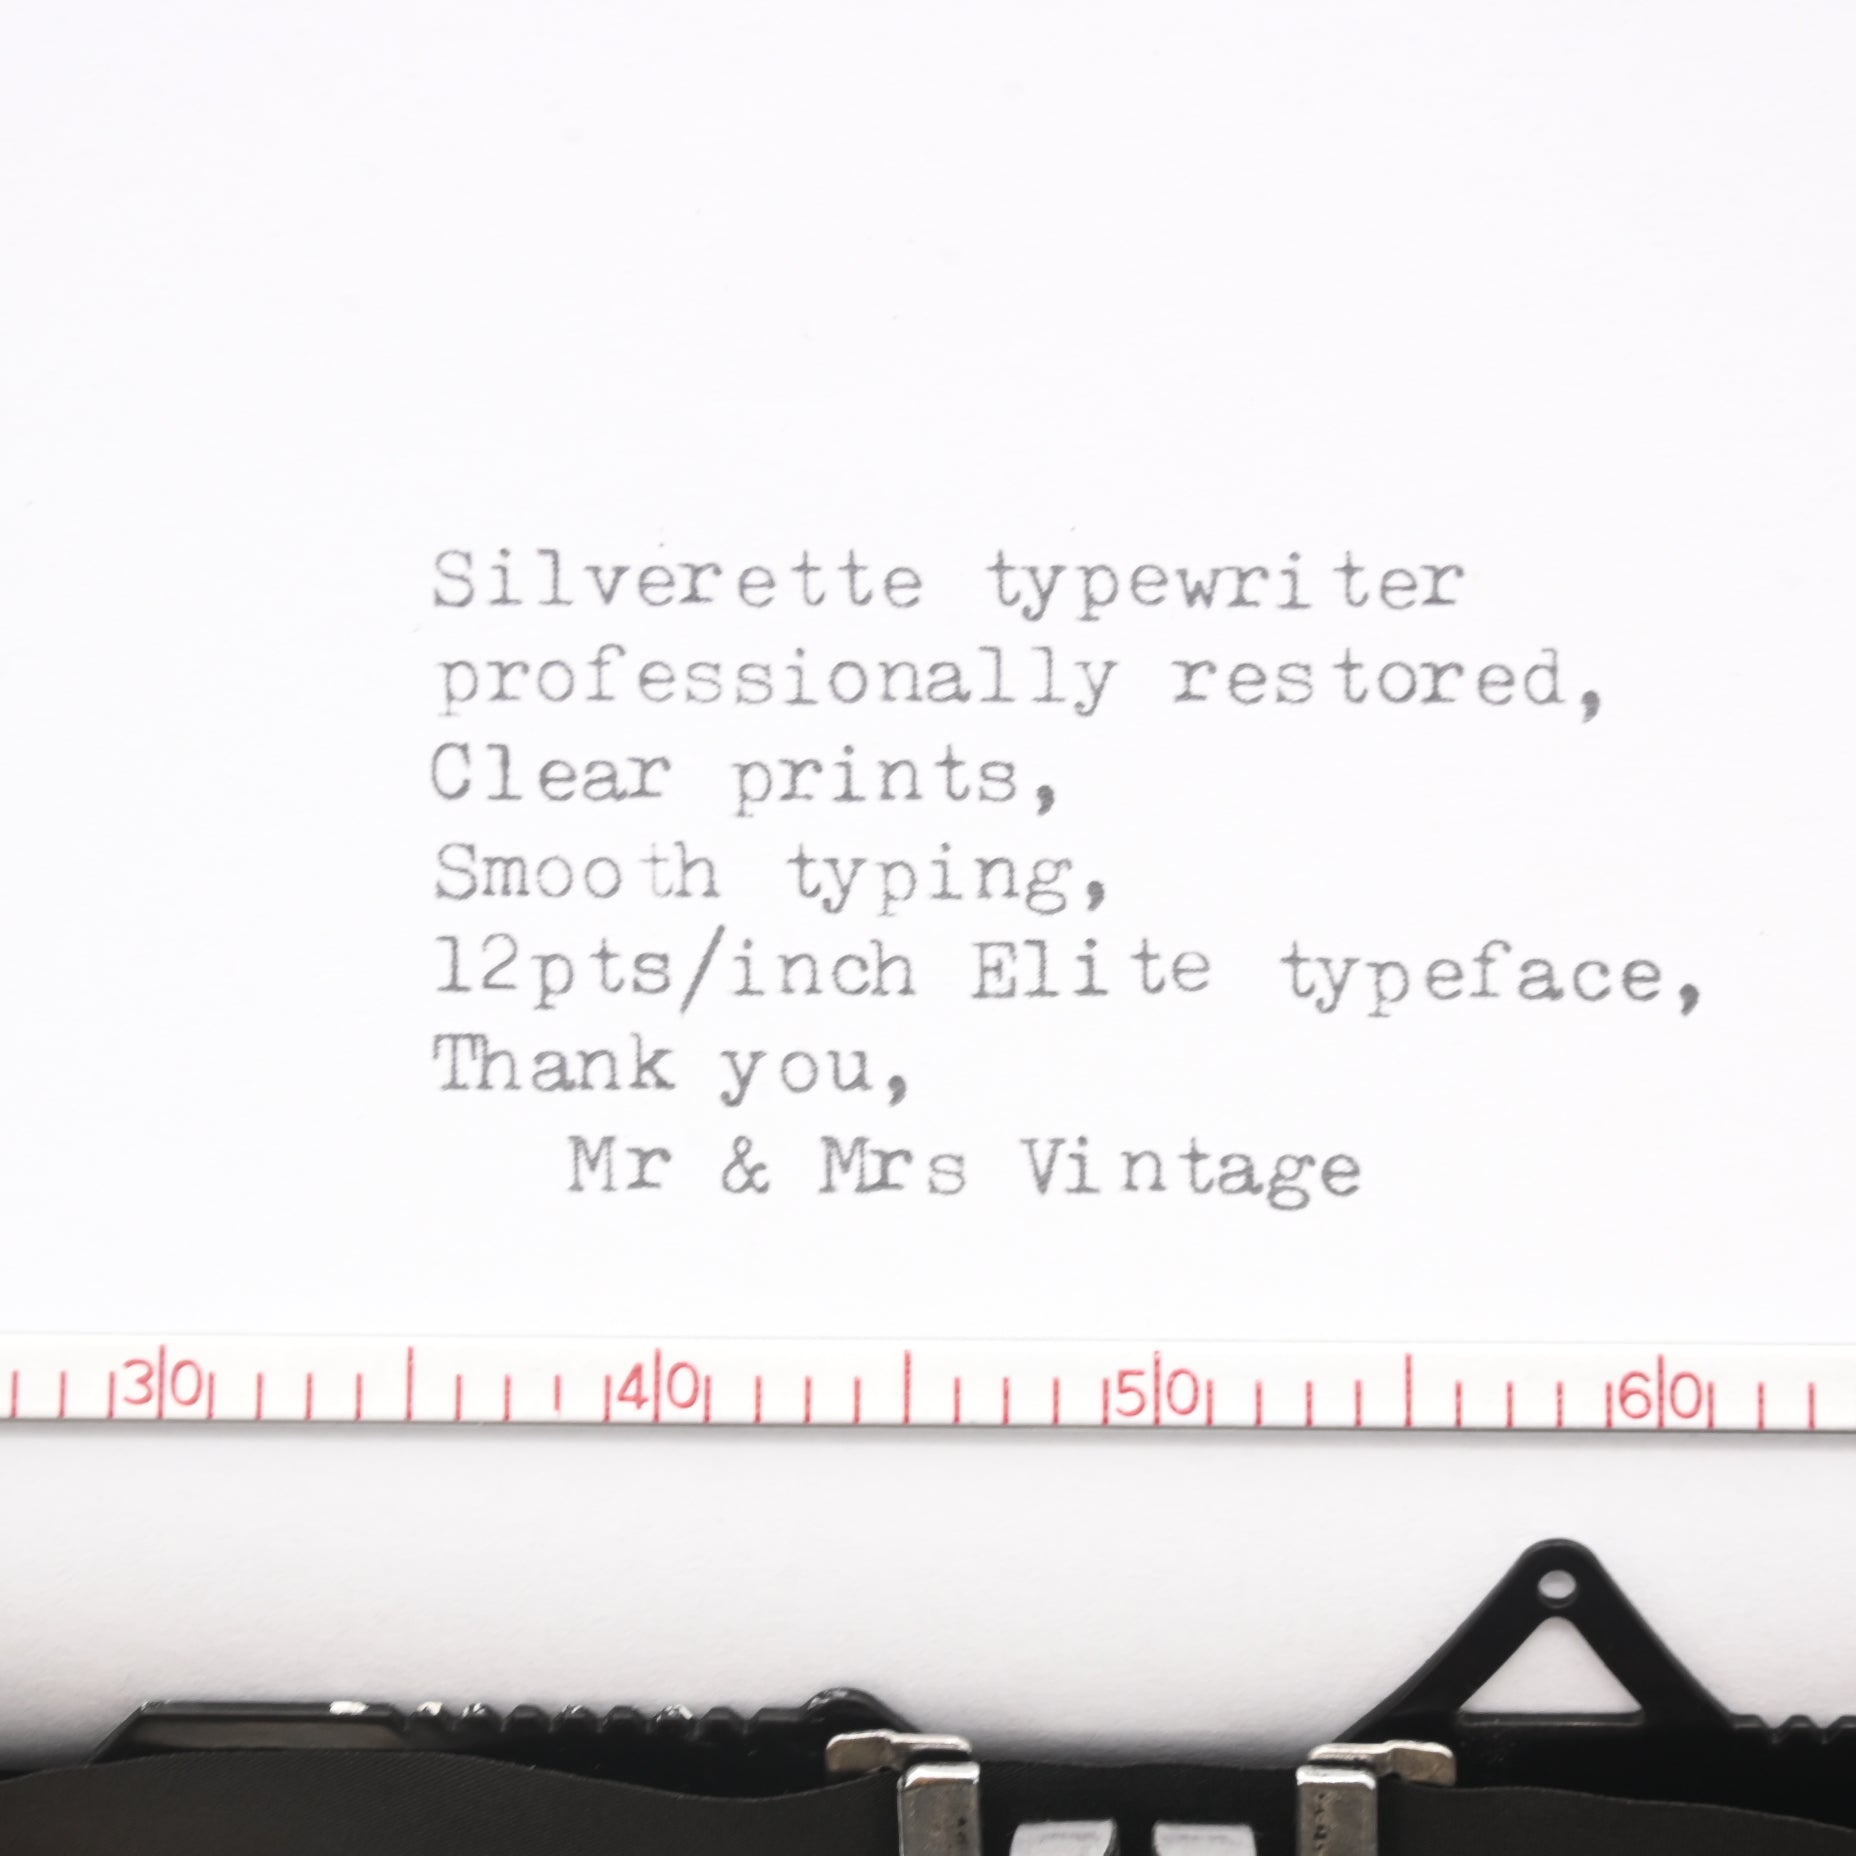 Silverette typewriter
professionally restored,
Clear prints,
Smooth typing,
12pts/inch Elite typeface,
Thank you,
Mr & Mrs Vintage
30 40 50 60